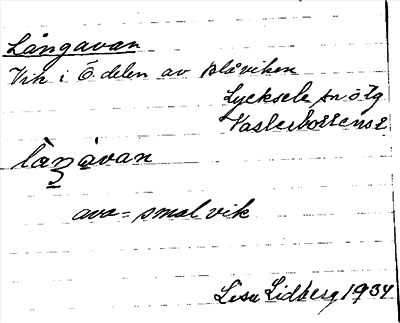 Långavan
Vik i Ö delen av Blåviken
Lycksele sn ö lg
Västerbottens l
làŋàvan
ava = smal vik
Lisa Lidberg 1934